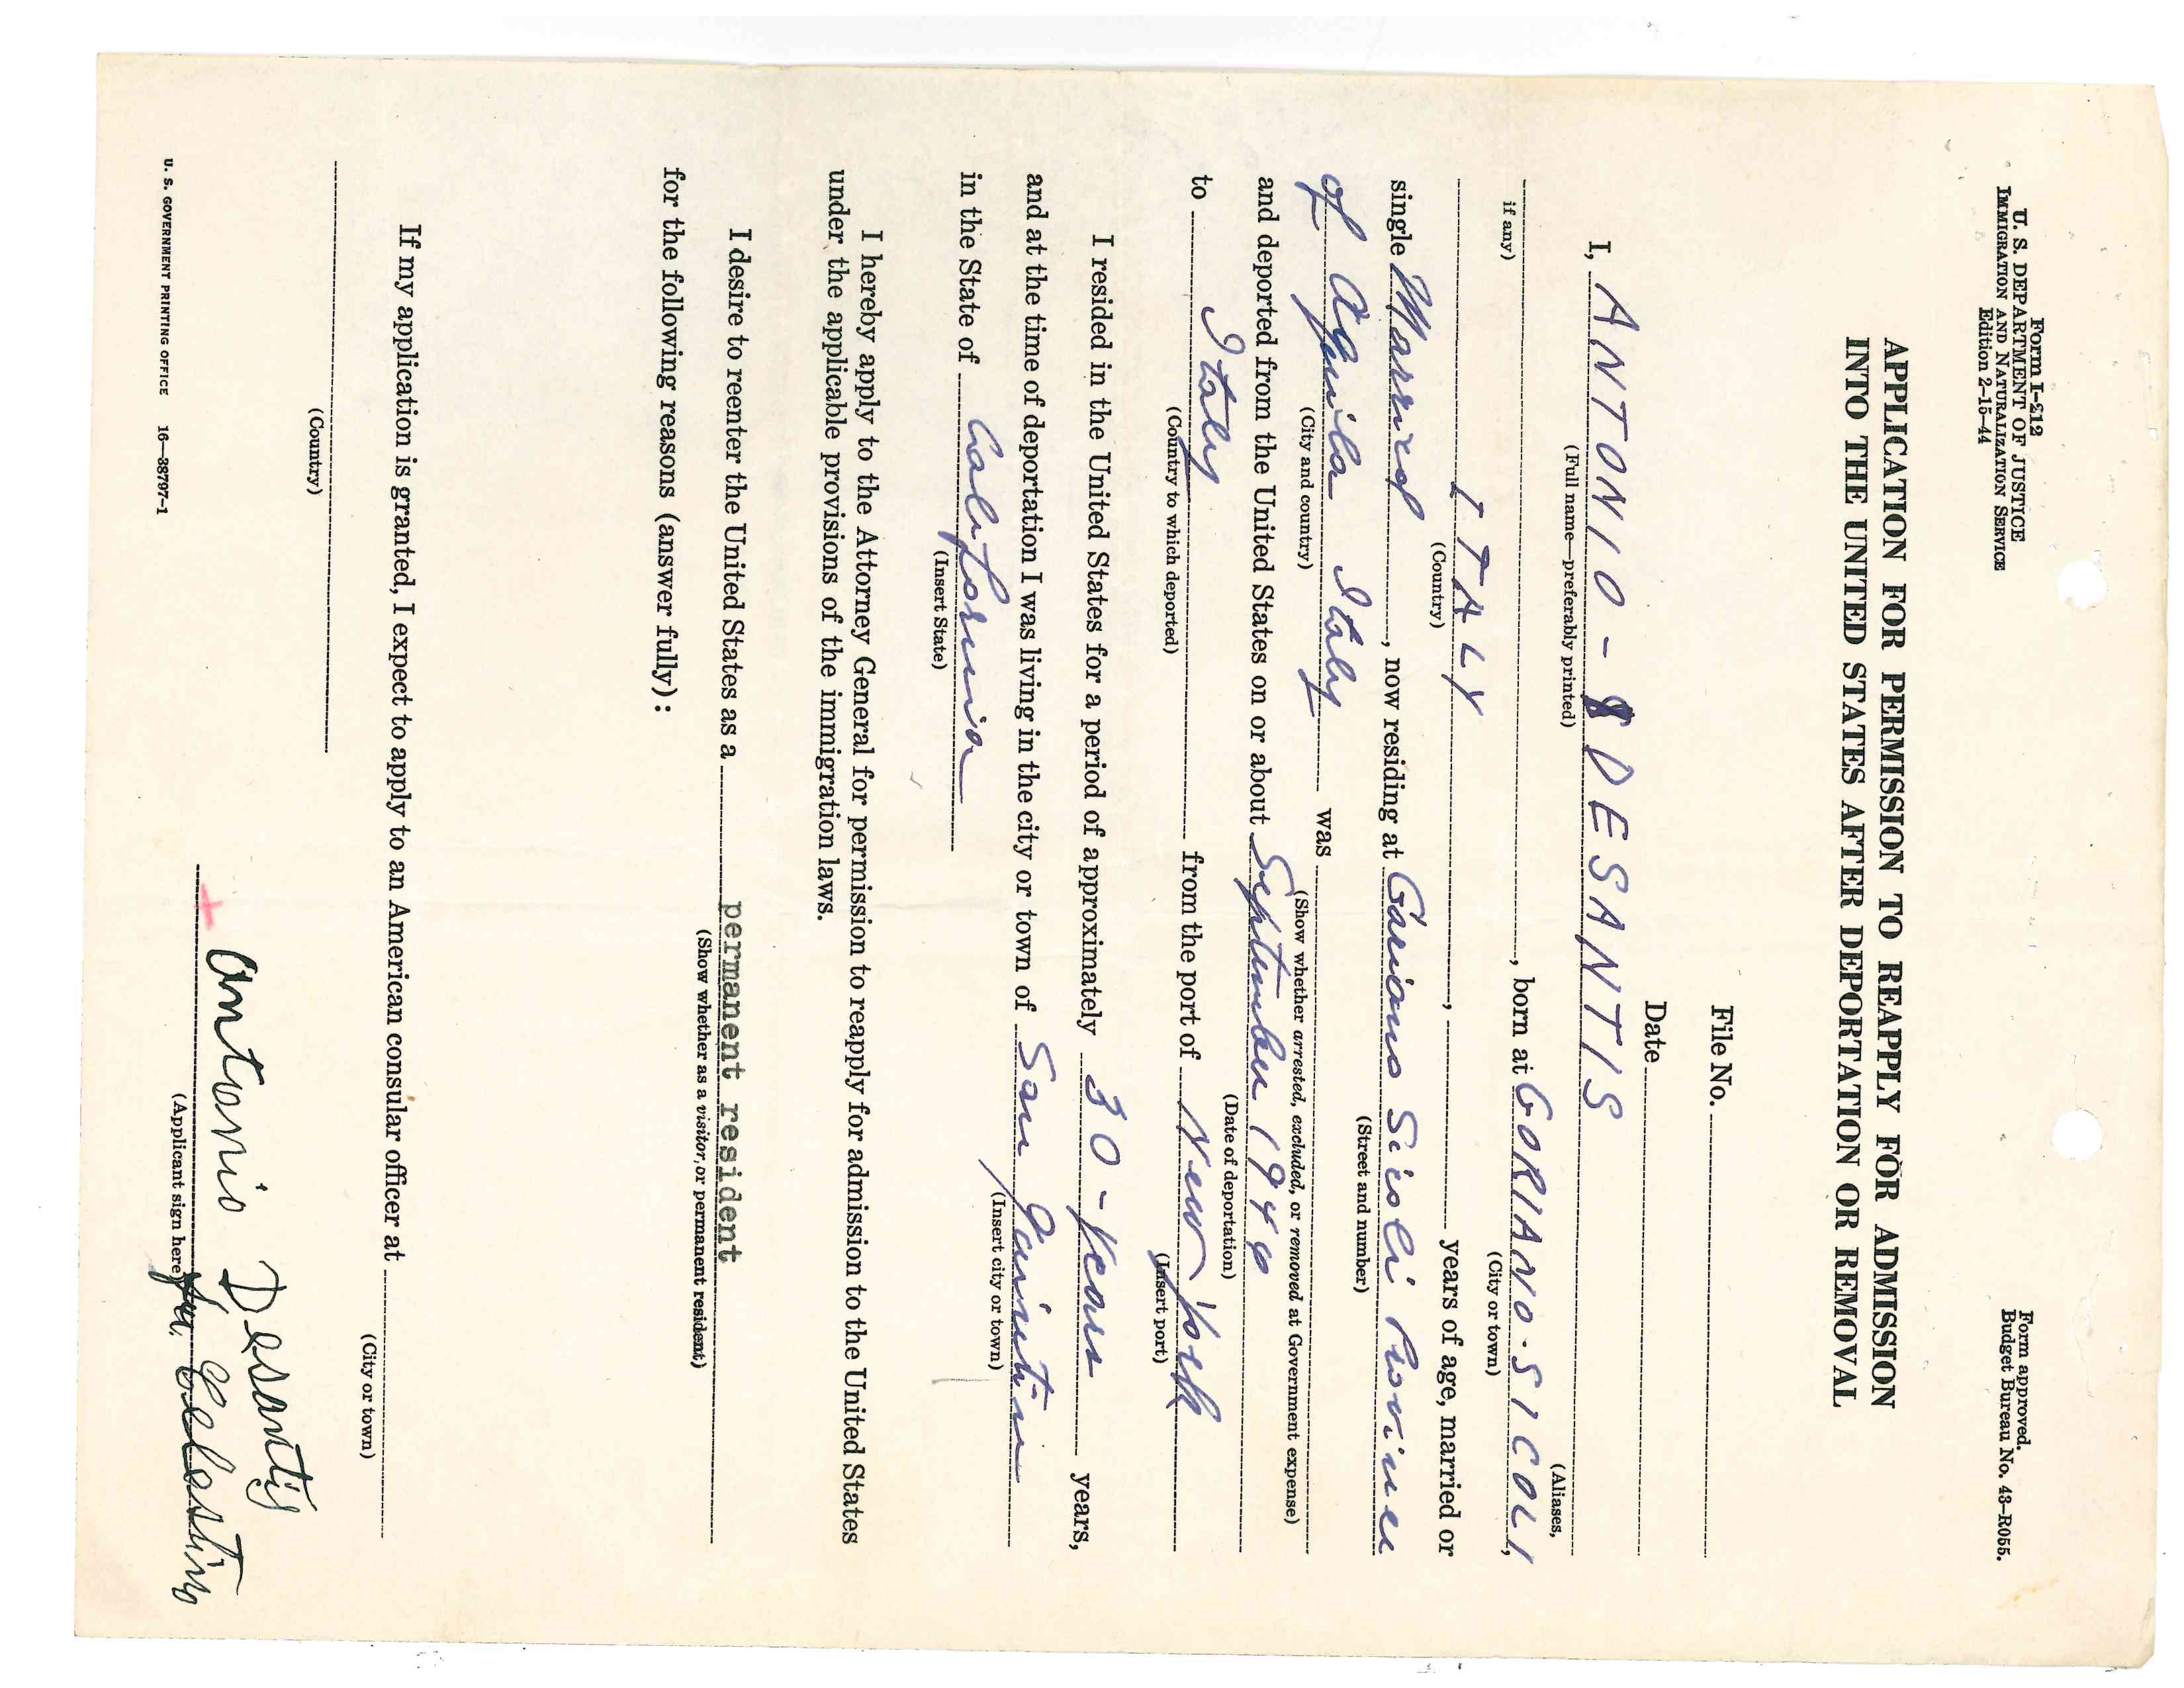 Form I-212
U. S. DEPARTMENT OF JUSTICE
IMMIGRATION AND NATURALIZATION SERVICE
Edition 2-15-44
Form approved.
Budget Bureau No. 43-R055.
APPLICATION FOR PERMISSION TO REAPPLY FOR ADMISSION
INTO THE UNITED STATES AFTER DEPORTATION OR REMOVAL
File No.
Date
I, ANTONIO - DESANTIS
(Full name—preferably printed)
(Aliases,
if any)
, born at GORIANO·SICOLI,
(City or town)
ITALY, years of age, married or
(Country)
single Married, now residing at Goriano Sicoli Province
(Street and number)
of Aquila Italy was
(City and country)
(Show whether arrested, excluded, or removed at Government expense)
and deported from the United States on or about September 1946
(Date of deportation)
to Italy from the port of New York
(Country to which deported)
(Insert port)
I resided in the United States for a period of approximately 30-Years years,
and at the time of deportation I was living in the city or town of San Quintin
(Insert city or town)
in the State of California
(Insert State)
I hereby apply to the Attorney General for permission to reapply for admission to the United States
under the applicable provisions of the immigration laws.
I desire to reenter the United States as a permanent resident
(Show whether as a visitor, or permanent resident)
for the following reasons (answer fully):
If my application is granted, I expect to apply to an American consular officer at
(City or town)
(Country)
Antonio Desantis
fu. Celestino
(Applicant sign here)
U. S. GOVERNMENT PRINTING OFFICE 16—38797-1